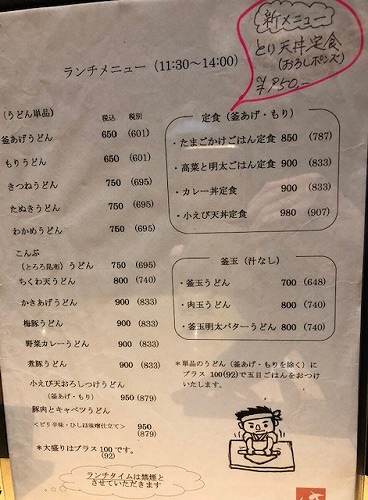 新メニュー
とり天丼定食
(おろしポンズ)
¥950.-
ランチメニュー (11:30〜14:00)
(うどん単品) 税込 税別
釜あげうどん 650 (601)
もりうどん 650 (601)
きつねうどん 750 (695)
たぬきうどん 750 (695)
わかめうどん 750 (695)
こんぶ
(とろろ昆布) うどん 750 (695)
ちくわ天うどん 800 (740)
かきあげうどん 900 (833)
梅豚うどん 900 (833)
野菜カレーうどん 900 (833)
煮豚うどん 900 (833)
小えび天おろしつけうどん
(釜あげ・もり) 950 (879)
豚肉とキャベツうどん
<ピリ辛味・ひしほ味噌仕立て> 950
(879)
*大盛りはプラス 100です。
(92)
ランチタイムは禁煙と
させていただきます
定食 (釜あげ・もり)
・たまごかけごはん定食 850 (787)
・高菜と明太ごはん定食 900 (833)
・カレー丼定食 900 (833)
・小えび天丼定食 980 (907)
釜玉 (汁なし)
・釜玉うどん 700 (648)
・肉玉うどん 800 (740)
・釜玉明太バターうどん 800 (740)
*単品のうどん (釜あげ・もりを除く) に
プラス 100(92)で五目ごはんをおつけ
いたします。